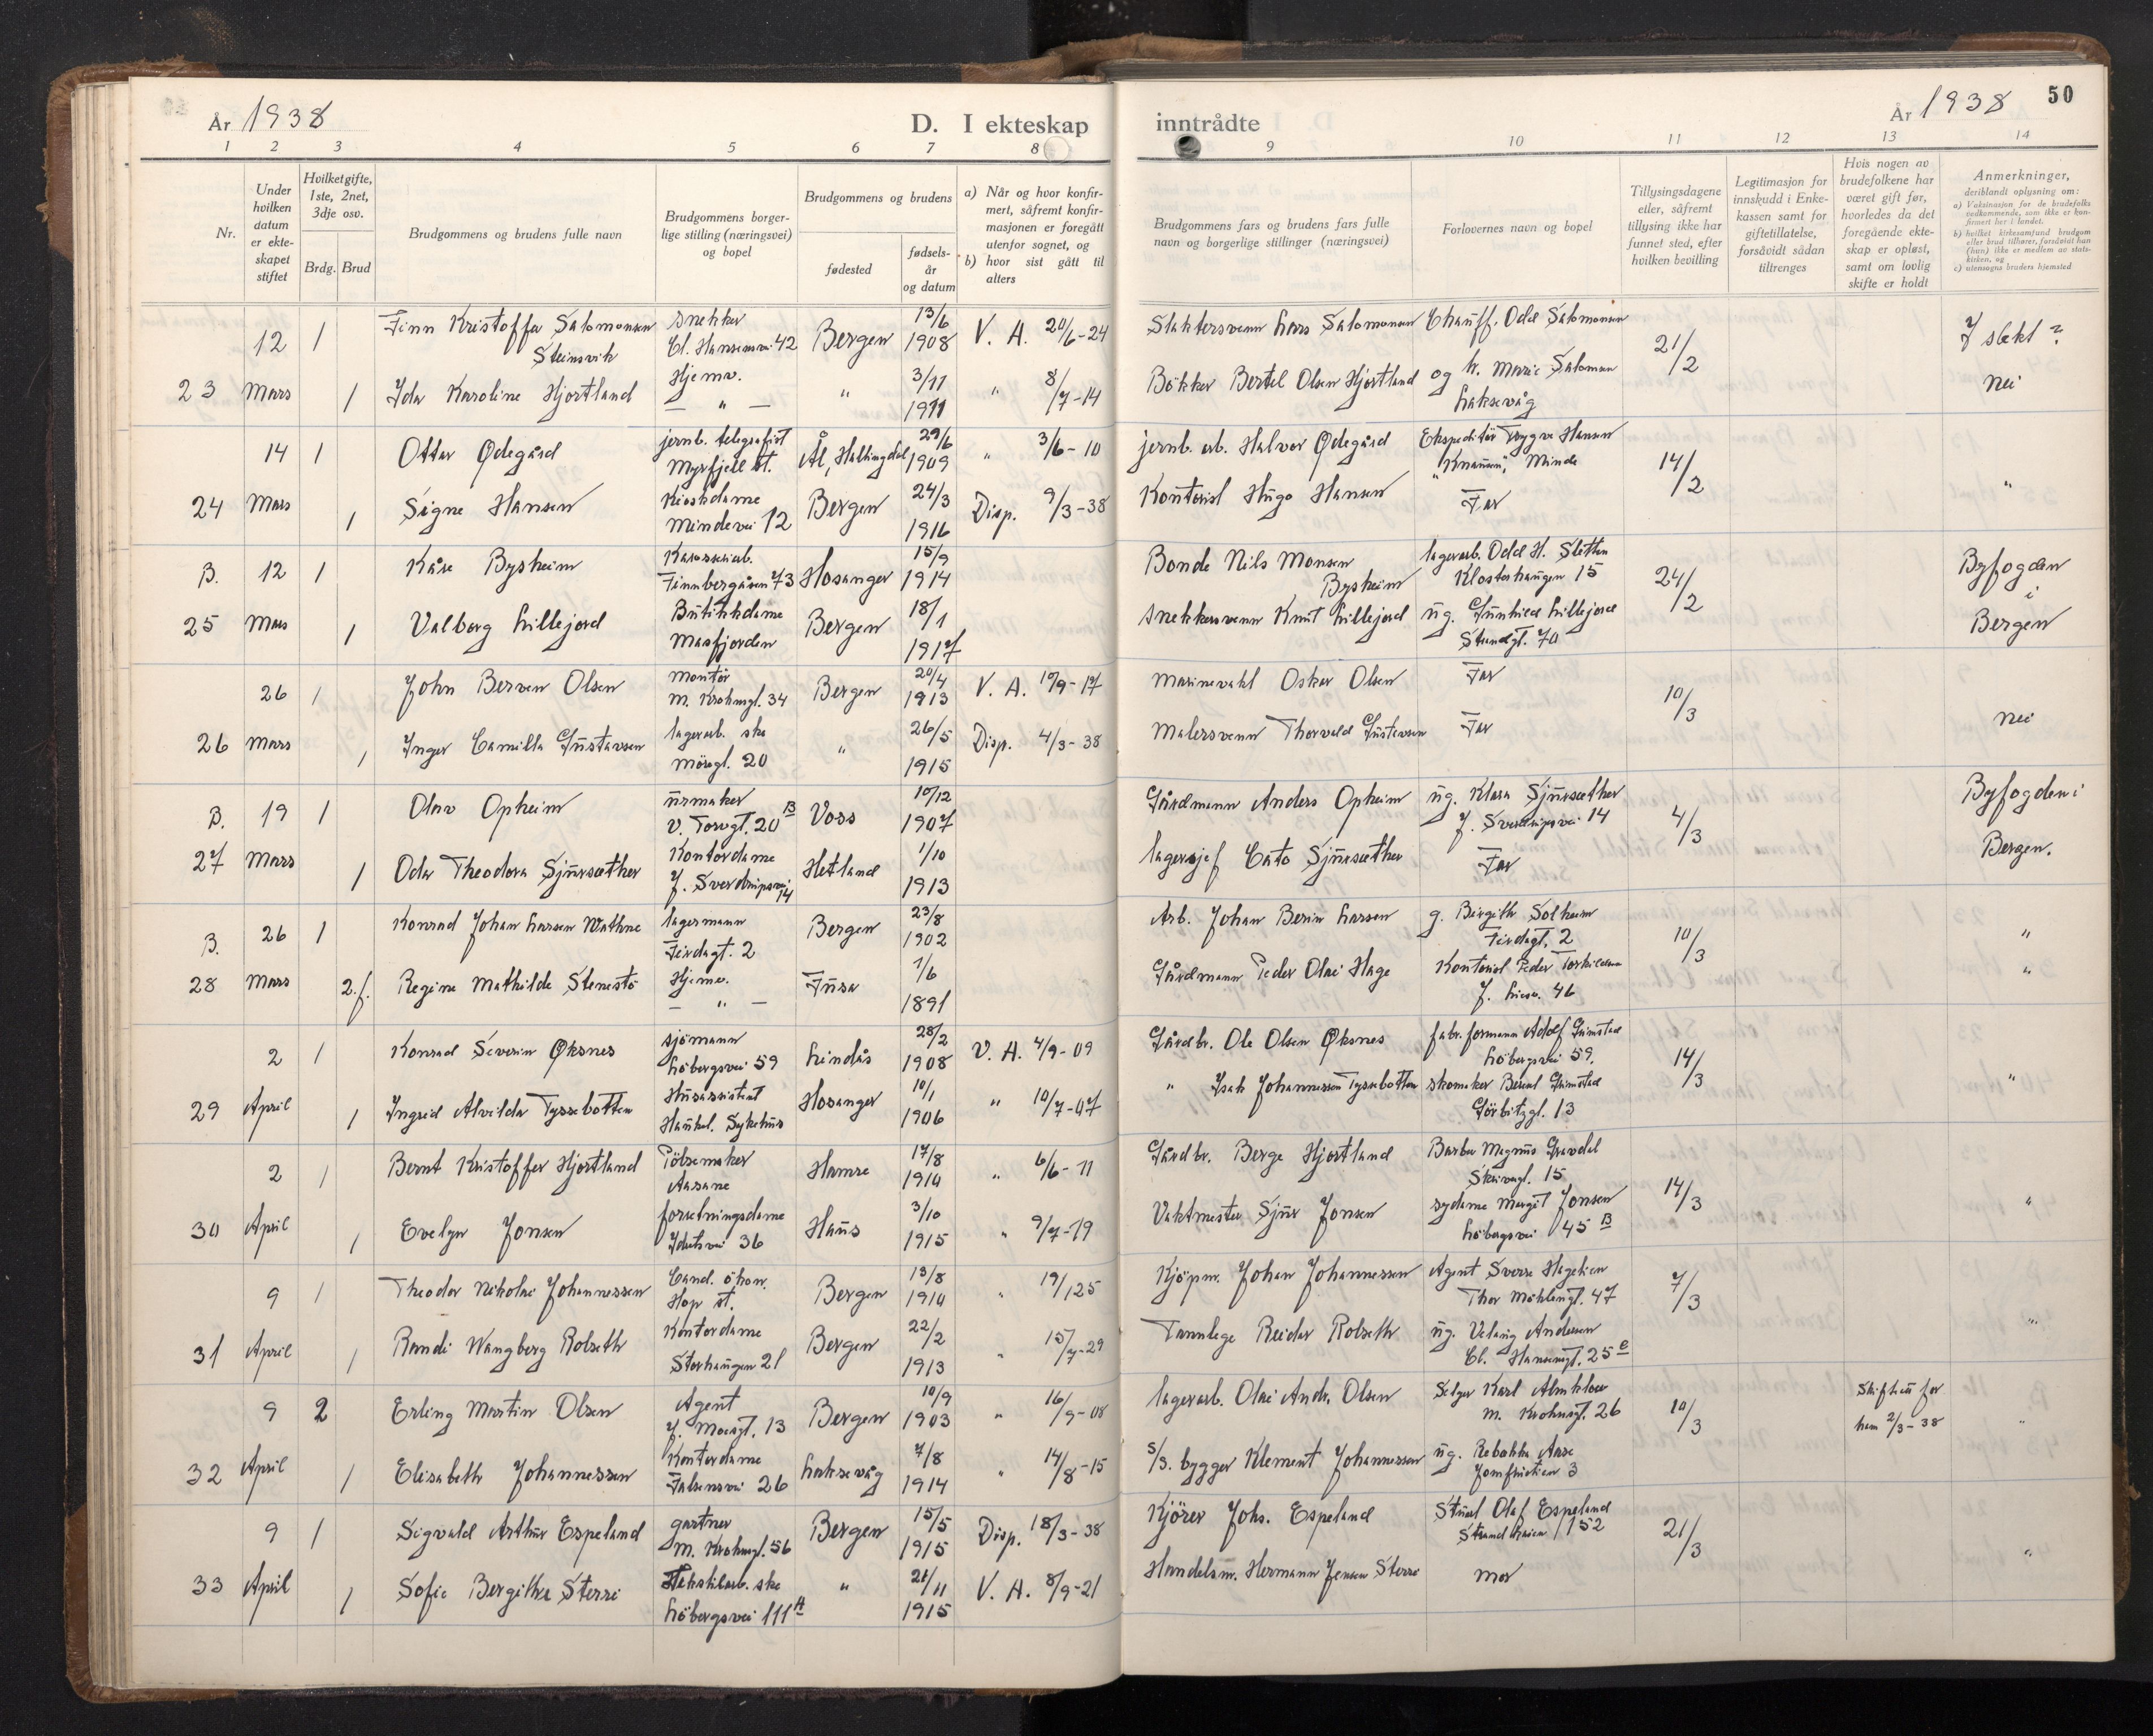 År 1938
D. I ekteskap
inntrådte
År 1938
50
1 2 3 4 5 6 7 8
9 10 11 12 13 14
Nr.
Under hvilken datum er ekteskapet stiftet
Hvilket gifte, 1ste, 2net, 3dje osv.
Brdg. Brud
Brudgommens og brudens fulle navn
Brudgommens borgerlige stilling (næringsvei) og bopel
Brudgommens og brudens
fødested
fødselsår og datum
a) Når og hvor konfirmert, såfremt konfirmasjonen er foregått utenfor sognet, og
b) hvor sist gått til alters
Brudgommens fars og brudens fars fulle navn og borgerlige stillinger (næringsvei)
Forlovernes navn og bopel
Tillysingsdagene eller, såfremt tillysing ikke har funnet sted, efter hvilken bevilling
Legitimasjon for innskudd i Enkekassen samt for giftetillatelse, forsåvidt sådan tiltrenges
Hvis nogen av brudefolkene har været gift før, hvorledes da det foregående ekteskap er opløst, samt om lovlig skifte er holdt
Anmerkninger,
deriblandt oplysning om:
a) Vaksinasjon for de brudefolks vedkommende, som ikke er konfirmert her i landet.
b) hvilket kirkesamfund brudgom eller brud tilhører, forsåvidt han (hun) ikke er medlem av statskirken, og
c) utensogns bruders hjemsted
12 1 Finn Kristoffer Salomonsen Steinsvik snekker Cl. Hansensvei 42 Bergen 13/6 1908 V. A. 20/6-24 Slaktersvenn Lars Salomonsen Chauff. Odd Salomonsen 21/2 I slekt?
23 Mars 1 Ida Karoline Hjortland Hjemv. — " — " 3/11 1911 " 8/7-14 Bökker Bertel Olsen Hjortland og h. Marie Laksevåg nei
14 1 Ottar Ødegård jernb. telegrafist Myrfjell st. Ål, Hallingdal 29/6 1909 " 3/6-10 jernb. arb. Halvor Ødegård Ekspeditör Trygve Hansen Minde 14/2
24 Mars 1 Signe Hansen Kioskdame Mindevei 12 Bergen 24/3 1916 Disp. 9/3-38 Kontorist Hugo Hansen Far "
B. 12 1 Kåre Bysheim Finnbergåsen 73 Hosanger 15/9 1914 Bonde Nils Monsen Bysheim lagerarb. Odd H. Sletten Klosterhaugen 15 24/2 Byfogden
25 Mars 1 Valborg Lillejord Butikkdame Masfjorden Bergen 18/1 1917 snekkersvenn Knut Lillejord ug. Gunhild Lillejord Strandgt. 70 i Bergen
26 1 John Berven Olsen montör M. Krohnsgt. 34 Bergen 20/4 1913 V. A. 10/9-17 Marinevakt Oskar Olsen Far 10/3
26 Mars 1 Inger Camilla Gustavsen lagerarb. ske " 26/5 1915 Disp. 4/3-38 Malersvenn Thorvald Gustavsen Far nei
B. 19 1 Olav Opheim urmaker V. Torvgt. 20 B Voss 10/12 1907 Gårdmann Anders Opheim ug. Klara Sjursæther J. Sverdrupsvei 14 4/3 Byfogden i
27 Mars 1 Oda Theodora Sjursæther Kontordame J. Sverdrupsvei 14 Hetland 1/10 1913 lagersjef Cato Sjursæther Far Bergen.
B. 26 1 Konrad Johan Larsen Wathne lagermann Firdagt. 2 Bergen 23/8 1902 Arb. Johan Berin Larsen g. Birgith Solheim Firdagt. 2 10/3 "
28 Mars 2.f. Regine Mathilde Stenestö Hjemv. — " — Fusa 1/6 1891 Gårdmann Peder Olai Hage Kontorist Peder Torkildsen "
2 1 Konrad Severin Øksnes sjömann Löbergsvei 59 Lindås 28/2 1908 V. A. 4/9-09 Gårdbr. Ole Olsen Øksnes fabr. formann Adolf Grimstad Löbergsvei 59. 14/3
29 April 1 Ingrid Alvilda Tyssebotten Husassistent Haukel. Sykehus Hosanger 10/1 1906 " 10/7-07 " Isak Johannessen Tyssebotten skomaker Bernt Grimstad Görbitzgt. 13 "
2 1 Bernt Kristoffer Hjortland Pölsemaker Aasane Hamre 17/8 1910 " 6/6-11 Gårdbr. Berge Hjortland Barber Magnus Skaivengt. 15 14/3
30 April 1 Evelyn Jonsen forretningsdame Haus 3/10 1915 " 9/7-19 Vaktmester Sjur Jonsen sydame Margit Jonsen Löbergsvei 45 B "
9 1 Theodor Nikolai Johannessen Cand. ökon. Hop st. Bergen 13/8 1910 " 19/125 Kjöpm. Johan Johannessen Agent Sverre Thor Möhlengt. 47 7/3
31 April 1 Randi Wangberg Rolseth Kontordame Storhaugen 21 Bergen 22/2 1913 " 15/7-29 Tannlege Reidar Rolseth ug. Andersen Cl. Hansensgt. 25 e "
9 2 Erling Martin Olsen Agent Bergen 10/9 1903 " 16/9-08 lagerarb. Olai Andr. Olsen Selger Karl M. Krohnsgt. 26 10/3 hen 2/3-38 "
32 April 1 Elisabeth Johannessen Kontordame Falsensvei 26 Laksevåg 7/8 1914 " 14/8-15 s/s. bygger Klement Johannessen ug. Rebekka Aase 3
9 1 Sigvald Arthur Espeland gartner M. Krohnsgt. 56 Bergen 15/5 1915 Disp. 18/3-38 Kjörer Johs. Espeland Stud Olaf Espeland 152 21/3
33 April 1 Sofie Bergitha Sterri Tekstilarb. ske Löbergsvei 111 A " 21/11 1915 V. A. 8/9-21 Handelsm. Hermann Jensen Sterri mor "